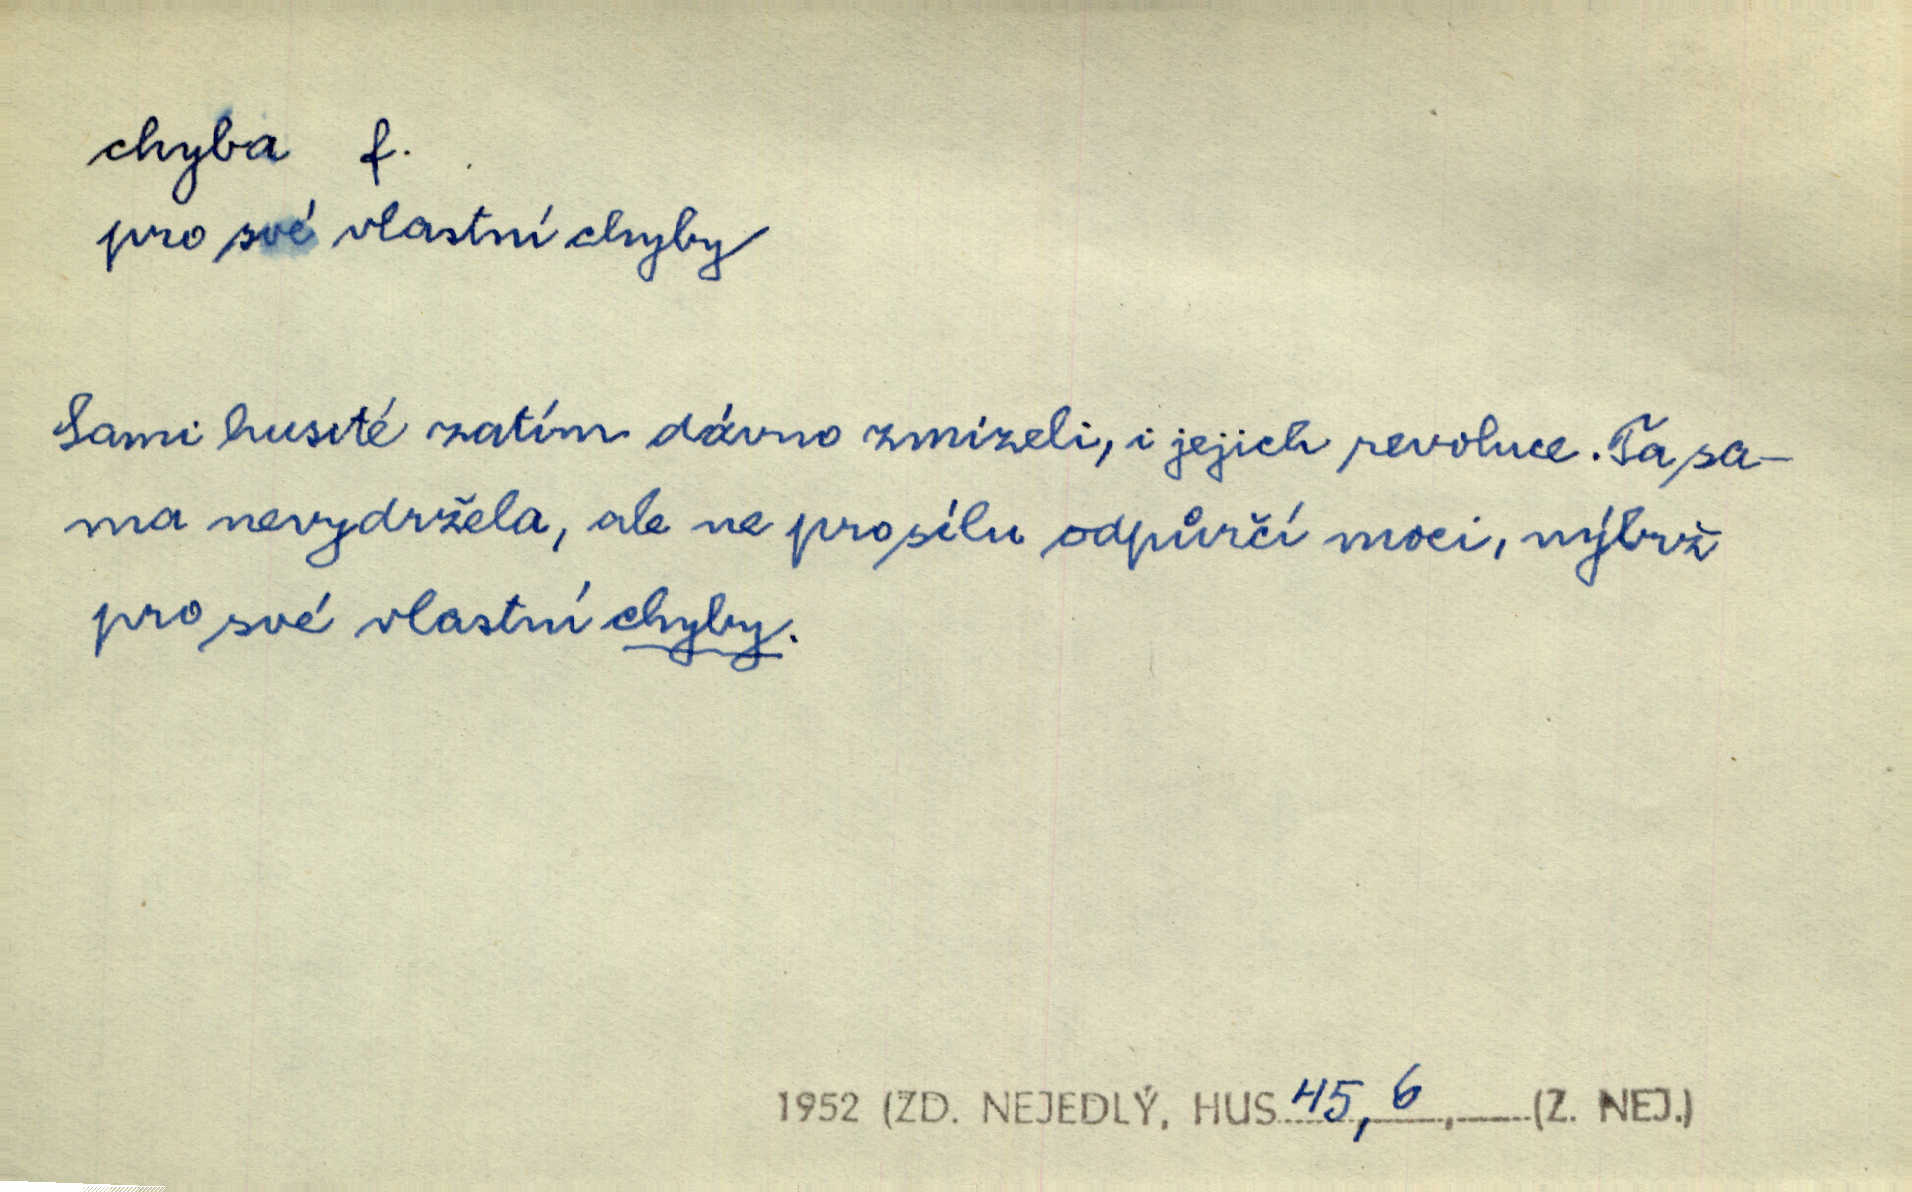 chyba f.
pro své vlastní chyby
Sami husité zatím dávno zmizeli, i jejich revoluce. Ta sa-
ma nevydržela, ale ne pro sílu odpůrčí moci, nýbrž
pro své vlastní chyby.
1952 (ZD. NEJEDLÝ, HUS 45, 6, (Z. NEJ.)